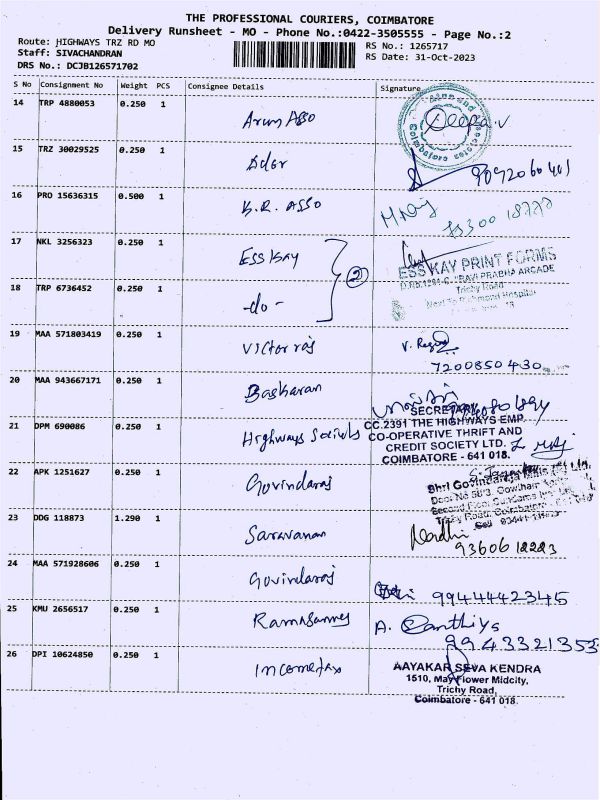 THE PROFESSIONAL COURIERS, COIMBATORE
Delivery Runsheet - MO - Phone No.:0422-3505555 - Page No.:2
Route: HIGHWAYS TRZ RD MO
RS No.: 1265717
Staff: SIVACHANDRAN
RS Date: 31-Oct-2023
DRS No.: DCJB126571702
S No Consignment No Weight PCS Consignee Details Signature
14 TRP 4880053 0.250 1 Arun Asso Deepa.V
Coimbatore
15 TRZ 30029525 0.250 1 Ador 9092060401
16 PRO 15636315 0.500 1 K.R. ASSO
17 NKL 3256323 0.250 1 ESS KAY
2
ESS KAY PRINT FORMS
RAVI PRABHA ARCADE
Trichy Road
Next To Richmond Hospital
18 TRP 6736452 0.250 1 -do-
19 MAA 571803419 0.250 1 Victor raj
7200850430
20 MAA 943667171 0.250 1 Baskaran
21 DPM 690086 0.250 1 Highways
SECRETARY
CC.2391 THE HIGHWAYS EMP
CO-OPERATIVE THRIFT AND
CREDIT SOCIETY LTD.
COIMBATORE - 641 018.
22 APK 1251627 0.250 1 Govindaraj
Shri Govindaraja Mills
23 DDG 118873 1.290 1 Saravanan
9360612223
24 MAA 571928606 0.250 1 Govindaraj 9944442345
25 KMU 2656517 0.250 1 Ramasamy A. Santhiya
9943321353
26 DPI 10624850 0.250 1 Incometax
AAYAKAR SEVA KENDRA
1510, May Flower Midcity,
Trichy Road,
Coimbatore - 641 018.